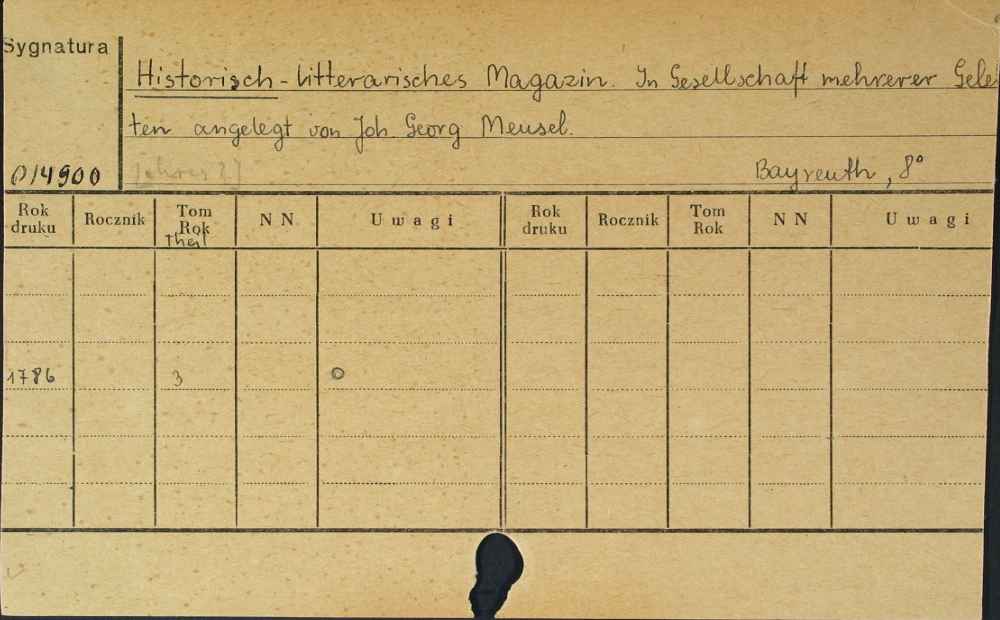 Sygnatura
Historisch-litterarisches Magazin. In Gesellschaft mehrerer Gele
ten angelegt von Joh. Georg Meusel.
014900
Bayreuth, 8°
Rok druku Rocznik Tom Rok Theil N N. U w a g i Rok druku Rocznik Tom Rok N N U w a g i
1786 3 O